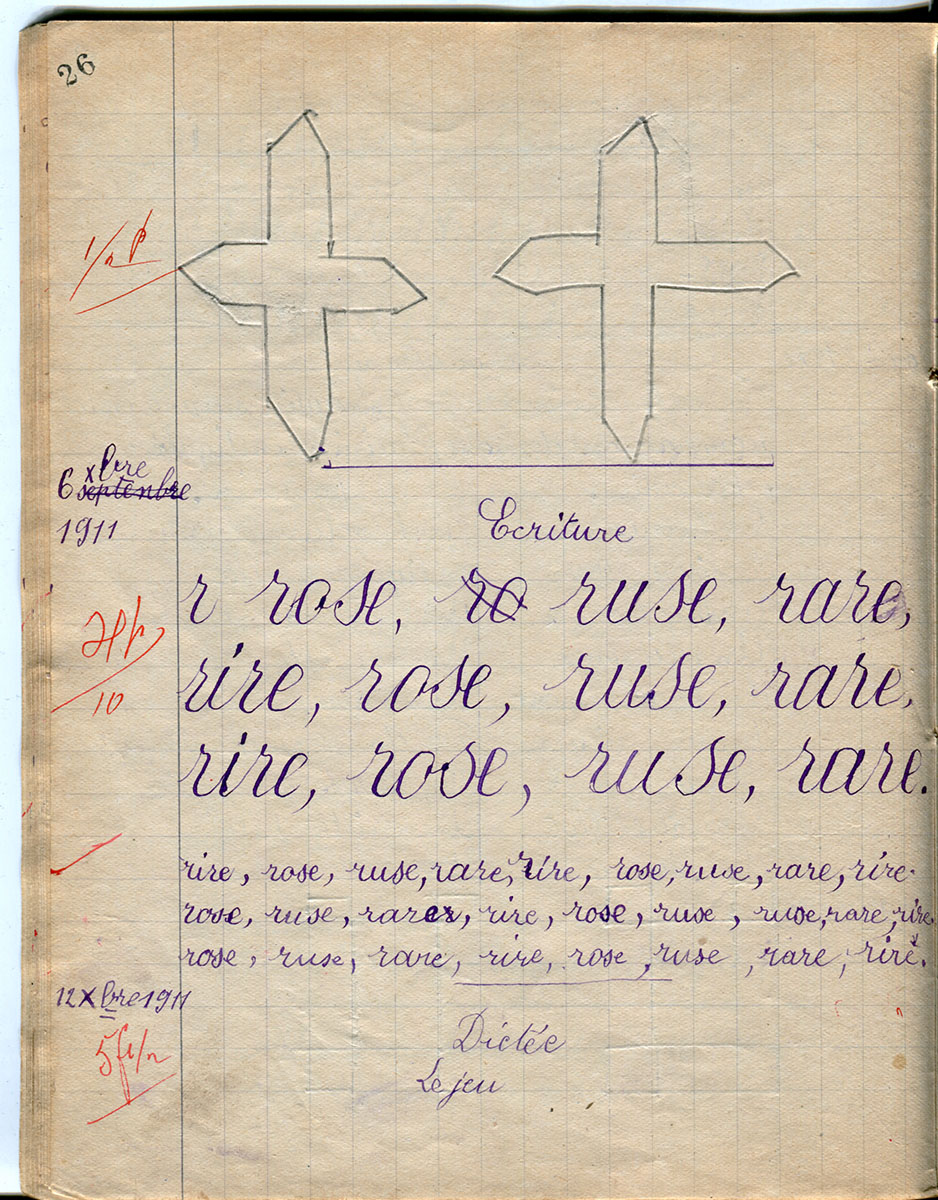 26
6 xbre
septenbre
1911
Ecriture
r rose, ro ruse, rare,
rire, rose, ruse, rare.
rire, rose, ruse, rare.
10
rire, rose, ruse, rare, rire, rose, ruse, rare, rire.
rose, ruse, rare, rire, rose, ruse, ruse, rare, rire
rose, ruse, rare, rire, rose, ruse, rare, rire.
12 Xbre 1911
Dictée
Le jeu